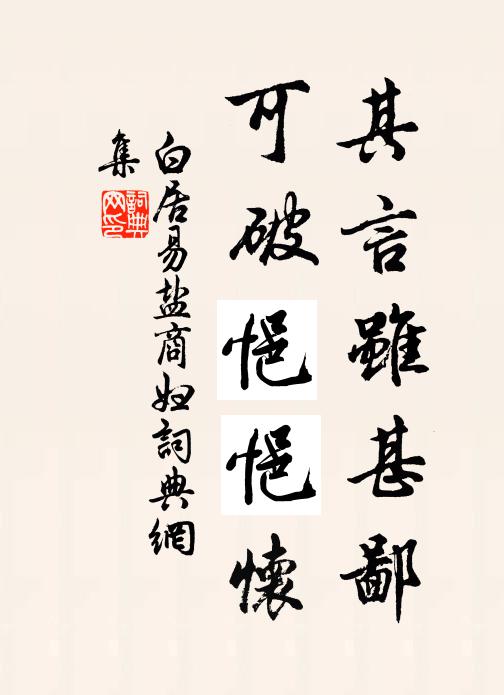 其言雖甚鄙
可破悒悒懷
白居易盐商妇詞典網
集
詞典
网印